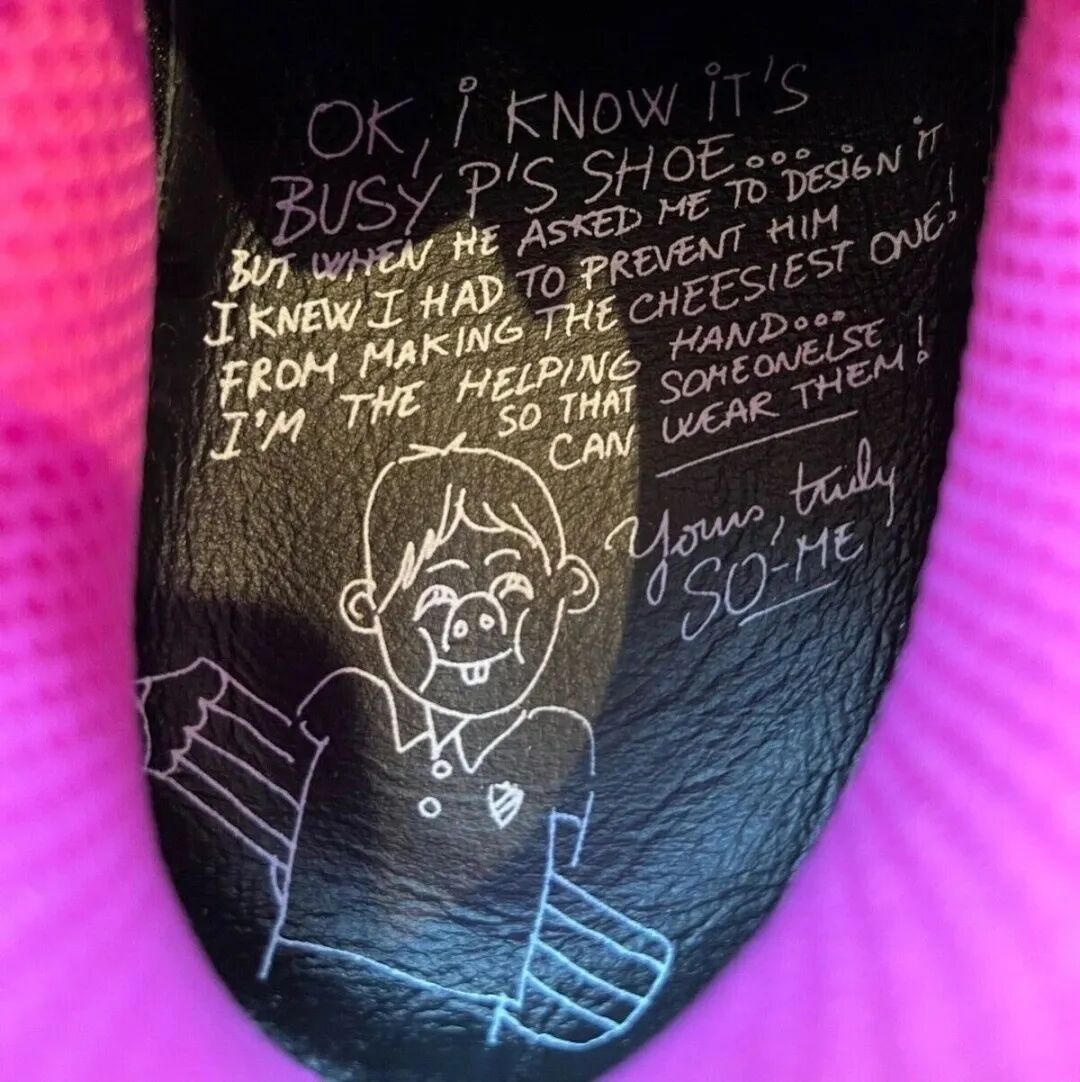 OK, i KNOW iT'S
BUSY P'S SHOE...
BUT WHEN HE ASKED ME TO DESIGN iT
I KNEW I HAD TO PREVENT HIM
FROM MAKING THE CHEESIEST ONE!
I'M THE HELPING HAND...
SO THAT SOMEONELSE
CAN WEAR THEM!
Yours, truly
SO-ME